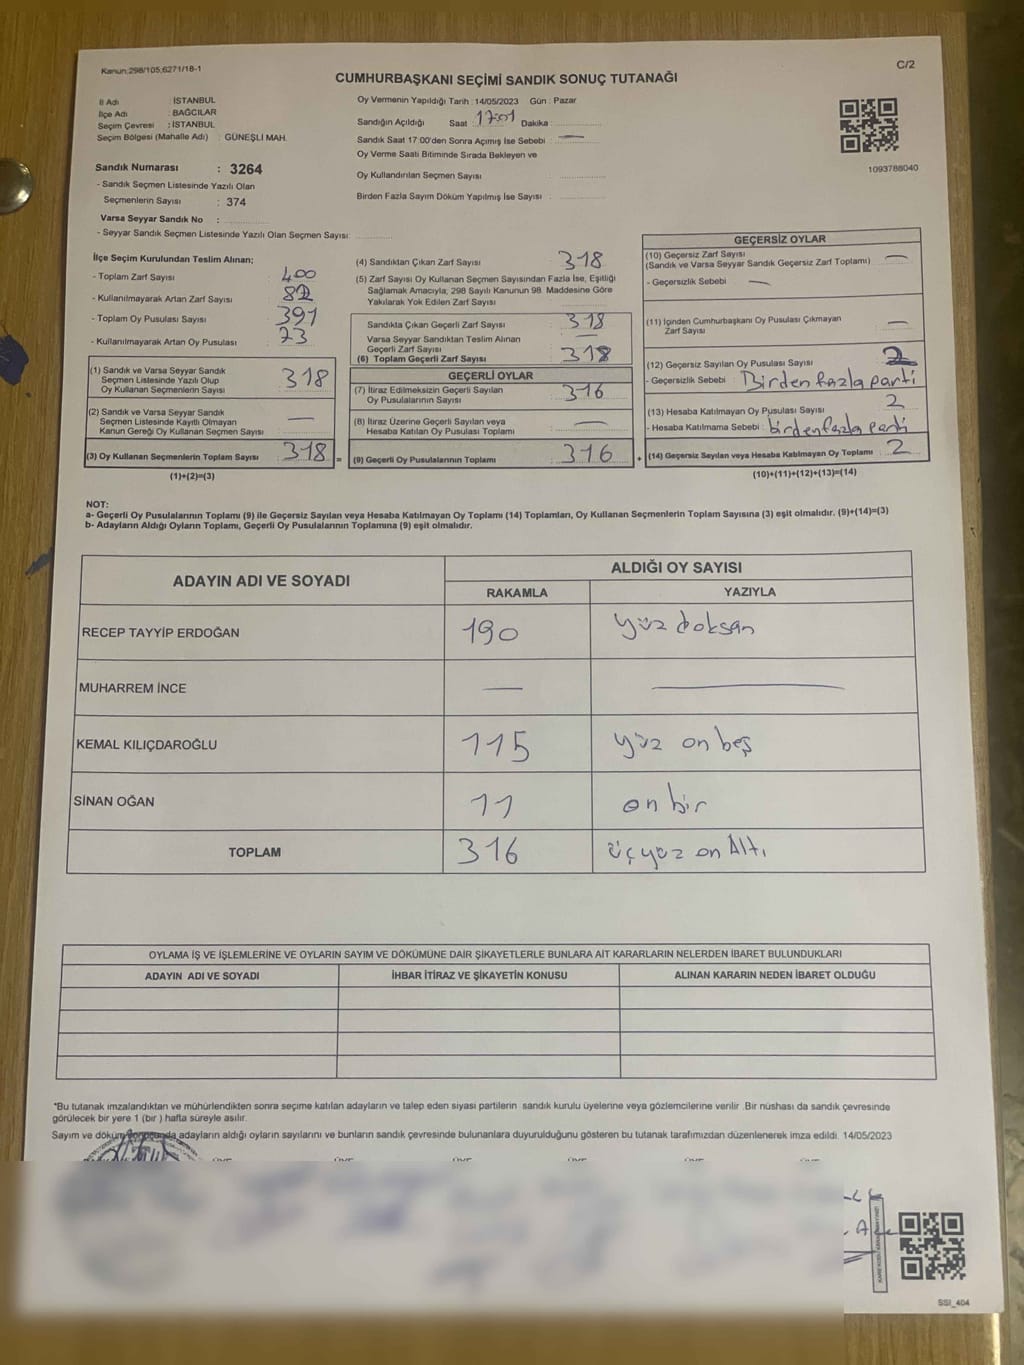 Kanun:298/105;6271/18-1
C/2
CUMHURBAŞKANI SEÇİMİ SANDIK SONUÇ TUTANAĞI
İl Adı : İSTANBUL
İlçe Adı : BAĞCILAR
Seçim Çevresi : İSTANBUL
Seçim Bölgesi (Mahalle Adı) : GÜNEŞLİ MAH.
Sandık Numarası : 3264
- Sandık Seçmen Listesinde Yazılı Olan
Seçmenlerin Sayısı : 374
Varsa Seyyar Sandık No :
- Seyyar Sandık Seçmen Listesinde Yazılı Olan Seçmen Sayısı:
Oy Vermenin Yapıldığı Tarih : 14/05/2023 Gün : Pazar
Sandığın Açıldığı Saat : 17:01 Dakika :
Sandık Saat 17:00'den Sonra Açımış İse Sebebi : —
Oy Verme Saati Bitiminde Sırada Bekleyen ve
Oy Kullandırılan Seçmen Sayısı
Birden Fazla Sayım Döküm Yapılmış İse Sayısı :
1093788040
İlçe Seçim Kurulundan Teslim Alınan;
- Toplam Zarf Sayısı 400
- Kullanılmayarak Artan Zarf Sayısı 82
- Toplam Oy Pusulası Sayısı 391
- Kullanılmayarak Artan Oy Pusulası 73
(1) Sandık ve Varsa Seyyar Sandık
Seçmen Listesinde Yazılı Olup
Oy Kullanan Seçmenlerin Sayısı 318
(2) Sandık ve Varsa Seyyar Sandık
Seçmen Listesinde Kayıtlı Olmayan
Kanun Gereği Oy Kullanan Seçmen Sayısı —
(3) Oy Kullanan Seçmenlerin Toplam Sayısı 318 =
(1)+(2)=(3)
(4) Sandıktan Çıkan Zarf Sayısı 318
(5) Zarf Sayısı Oy Kullanan Seçmen Sayısından Fazla İse, Eşitliği
Sağlamak Amacıyla; 298 Sayılı Kanunun 98. Maddesine Göre
Yakılarak Yok Edilen Zarf Sayısı
Sandıkta Çıkan Geçerli Zarf Sayısı 318
Varsa Seyyar Sandıktan Teslim Alınan
Geçerli Zarf Sayısı —
(6) Toplam Geçerli Zarf Sayısı 318
GEÇERLİ OYLAR
(7) İtiraz Edilmeksizin Geçerli Sayılan
Oy Pusulalarının Sayısı 316
(8) İtiraz Üzerine Geçerli Sayılan veya
Hesaba Katılan Oy Pusulası Toplamı —
(9) Geçerli Oy Pusulalarının Toplamı 316 +
GEÇERSİZ OYLAR
(10) Geçersiz Zarf Sayısı
(Sandık ve Varsa Seyyar Sandık Geçersiz Zarf Toplamı) —
- Geçersizlik Sebebi —
(11) İçinden Cumhurbaşkanı Oy Pusulası Çıkmayan
Zarf Sayısı —
(12) Geçersiz Sayılan Oy Pusulası Sayısı 2
- Geçersizlik Sebebi : Birden fazla parti
(13) Hesaba Katılmayan Oy Pusulası Sayısı 2
- Hesaba Katılmama Sebebi : birden fazla parti
(14) Geçersiz Sayılan veya Hesaba Katılmayan Oy Toplamı 2
(10)+(11)+(12)+(13)=(14)
NOT:
a- Geçerli Oy Pusulalarının Toplamı (9) ile Geçersiz Sayılan veya Hesaba Katılmayan Oy Toplamı (14) Toplamları, Oy Kullanan Seçmenlerin Toplam Sayısına (3) eşit olmalıdır. (9)+(14)=(3)
b- Adayların Aldığı Oyların Toplamı, Geçerli Oy Pusulalarının Toplamına (9) eşit olmalıdır.
ADAYIN ADI VE SOYADI ALDIĞI OY SAYISI
RAKAMLA YAZIYLA
RECEP TAYYİP ERDOĞAN 190 yüz doksan
MUHARREM İNCE — —
KEMAL KILIÇDAROĞLU 115 yüz on beş
SİNAN OĞAN 11 on bir
TOPLAM 316 üç yüz on Altı
OYLAMA İŞ VE İŞLEMLERİNE VE OYLARIN SAYIM VE DÖKÜMÜNE DAİR ŞİKAYETLERLE BUNLARA AİT KARARLARIN NELERDEN İBARET BULUNDUKLARI
ADAYIN ADI VE SOYADI İHBAR İTİRAZ VE ŞİKAYETİN KONUSU ALINAN KARARIN NEDEN İBARET OLDUĞU
*Bu tutanak imzalandıktan ve mühürlendikten sonra seçime katılan adayların ve talep eden siyasi partilerin sandık kurulu üyelerine veya gözlemcilerine verilir .Bir nüshası da sandık çevresinde
görülecek bir yere 1 (bir ) hafta süreyle asılır.
Sayım ve döküm sonucunda adayların aldığı oyların sayılarını ve bunların sandık çevresinde bulunanlara duyurulduğunu gösteren bu tutanak tarafımızdan düzenlenerek imza edildi. 14/05/2023
SSI_404